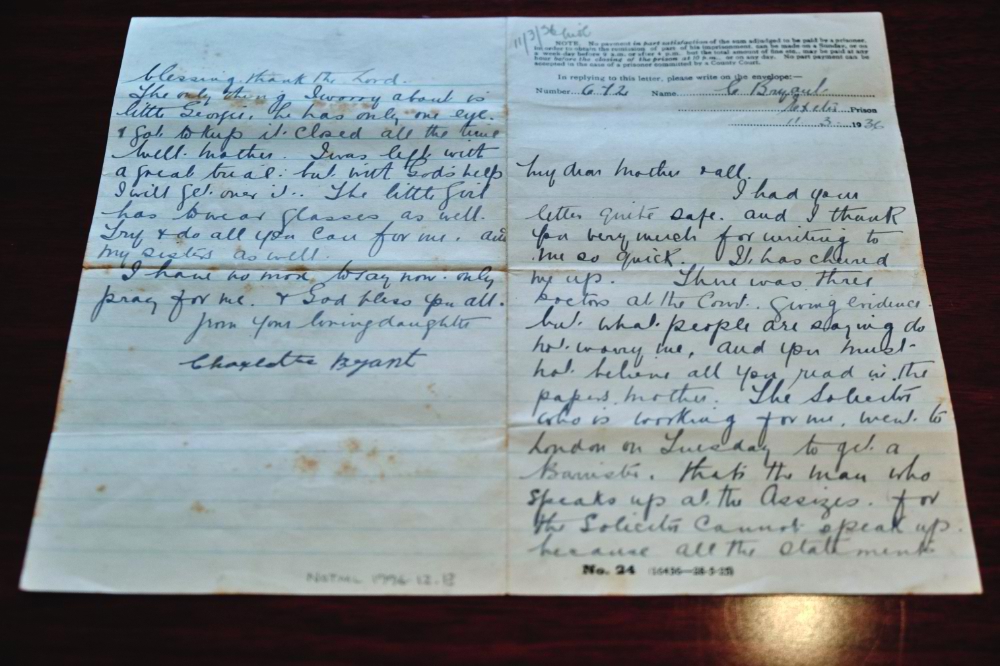 11/3/36
NOTE. No payment in part satisfaction of the sum adjudged to be paid by a prisoner,
in order to obtain the remission of part of his imprisonment, can be made on a Sunday, or on
a week-day before 9 a.m. or after 4 p.m. but the total amount of fine etc., may be paid at any
hour before the closing of the prison at 10 p.m. or on any day. No part payment can be
accepted in the case of a prisoner committed by a County Court.
In replying to this letter, please write on the envelope:—
Number 672 Name C Bryant
Exeter Prison
11 3 1936
My dear Mother & all.
I had your
letter quite safe. and I thank
you very much for writing to
me so quick. It has cheered
me up. There was three
Doctors at the Court. giving evidence.
but what people are saying do
not worry me, and you must
not believe all you read in the
papers, Mother. The Solicitor
who is working for me, went to
London on Tuesday to get a
Barrister. that's the man who
speaks up at the Assizes. for
the Solicitor cannot speak up.
because all the statements
No. 24
blessing. thank the Lord.
The only thing I worry about is
little Georgie. he has only one eye.
& got to kup it closed all the time
Well. Mother. I was left with
a great trial. but with Gods help
I will get over it.. The little Girl
has to wear glasses as well.
Try & do all you can for me. and
my sisters as well.
I have no more to say now. only
pray for me. & God bless you all.
from your loving daughter
Charlotte Bryant